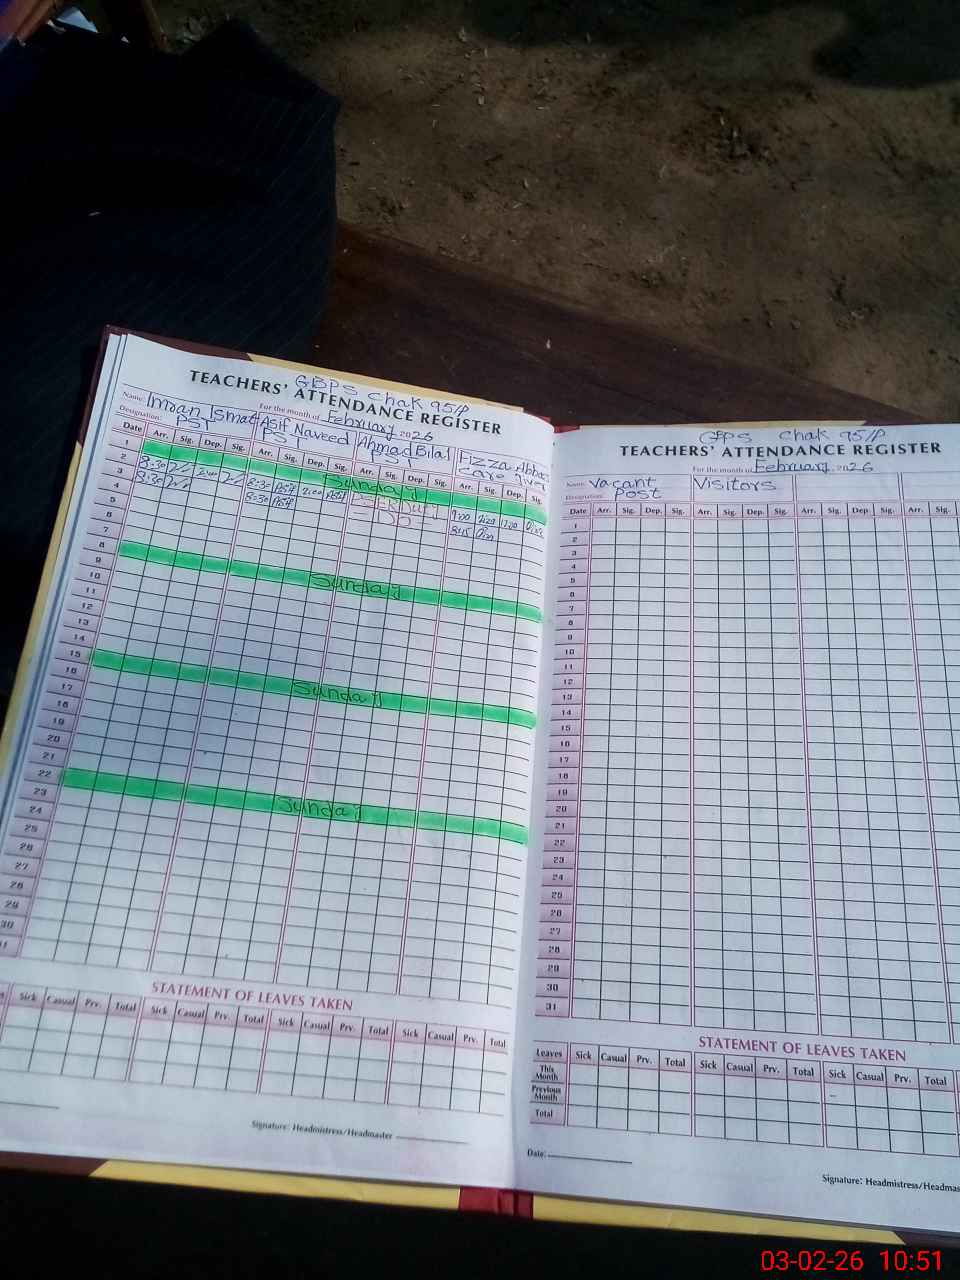 GBPS Chak 95/P
TEACHERS' ATTENDANCE REGISTER
For the month of February 2026
Name: Imran Ismat Asif Naveed Ahmad Bilal Fizza Abbas
Designation: PST PST PST Care giver
Date Arr. Sig. Dep. Sig. Arr. Sig. Dep. Sig. Arr. Sig. Dep. Sig. Arr. Sig. Dep. Sig.
1 Sunday
2 8:30 2:00 8:30 Asif 2:00 Asif 9:00 12:00
3 8:30 8:30 Asif 8:45
4
5
6
7
8 Sunday
9
10
11
12
13
14
15 Sunday
16
17
18
19
20
21
22 Sunday
23
24
25
26
27
28
29
30
STATEMENT OF LEAVES TAKEN
Sick Casual Prv. Total Sick Casual Prv. Total Sick Casual Prv. Total Sick Casual Prv. Total
Signature: Headmistress/Headmaster
GPPS Chak 95/P
TEACHERS' ATTENDANCE REGISTER
For the month of February 2026
Name: Vacant Visitors
Designation: Post
Date Arr. Sig. Dep. Sig. Arr. Sig. Dep. Sig. Arr. Sig. Dep. Sig. Arr. Sig.
1
2
3
4
5
6
7
8
9
10
11
12
13
14
15
16
17
18
19
20
21
22
23
24
25
26
27
28
29
30
31
STATEMENT OF LEAVES TAKEN
Leaves Sick Casual Prv. Total Sick Casual Prv. Total Sick Casual Prv. Total
This Month
Previous Month
Total
Date:
Signature: Headmistress/Headmas
03-02-26 10:51